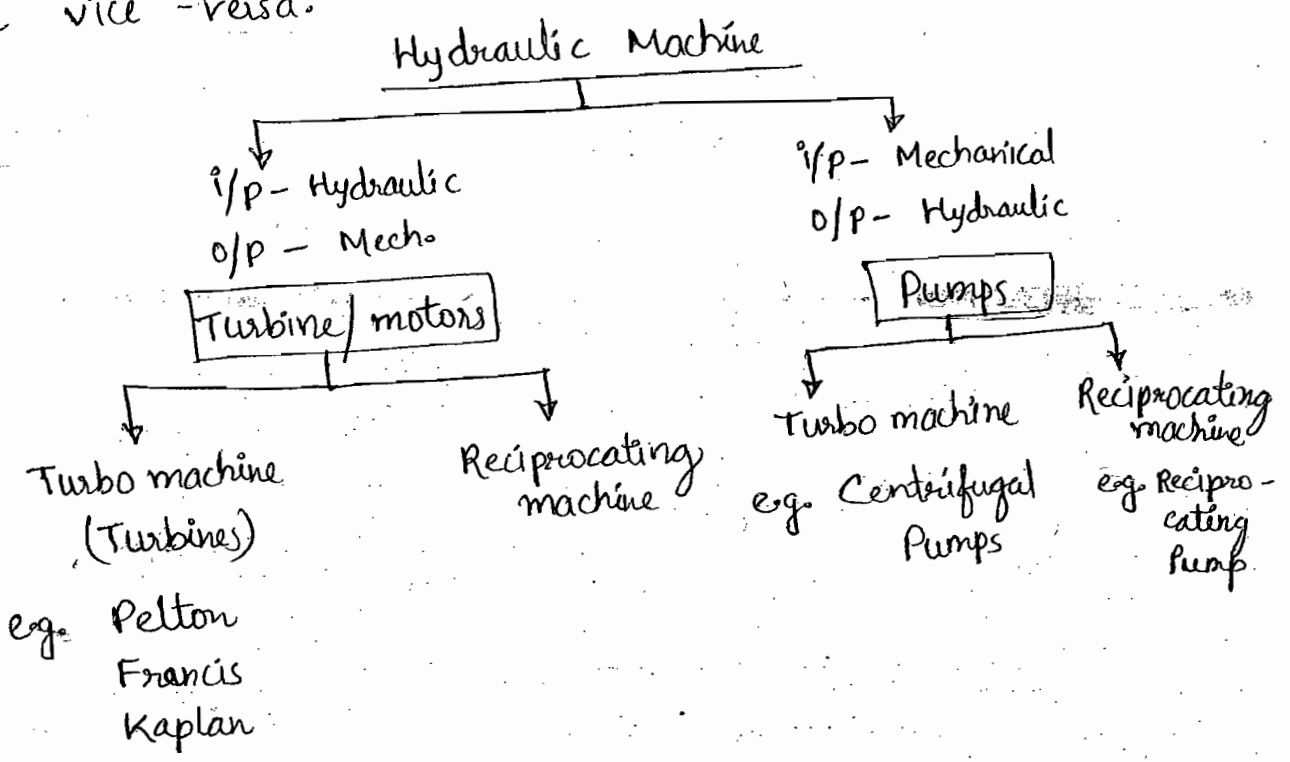 vice - versa.
Hydraulic Machine
i/p - Hydraulic
o/p - Mech.
Turbine/motors
Turbo machine
(Turbines)
e.g. Pelton
Francis
Kaplan
Reciprocating
machine
i/p - Mechanical
o/p - Hydraulic
Pumps
Turbo machine
e.g. Centrifugal
Pumps
Reciprocating
machine
e.g. Recipro-
cating
Pump.